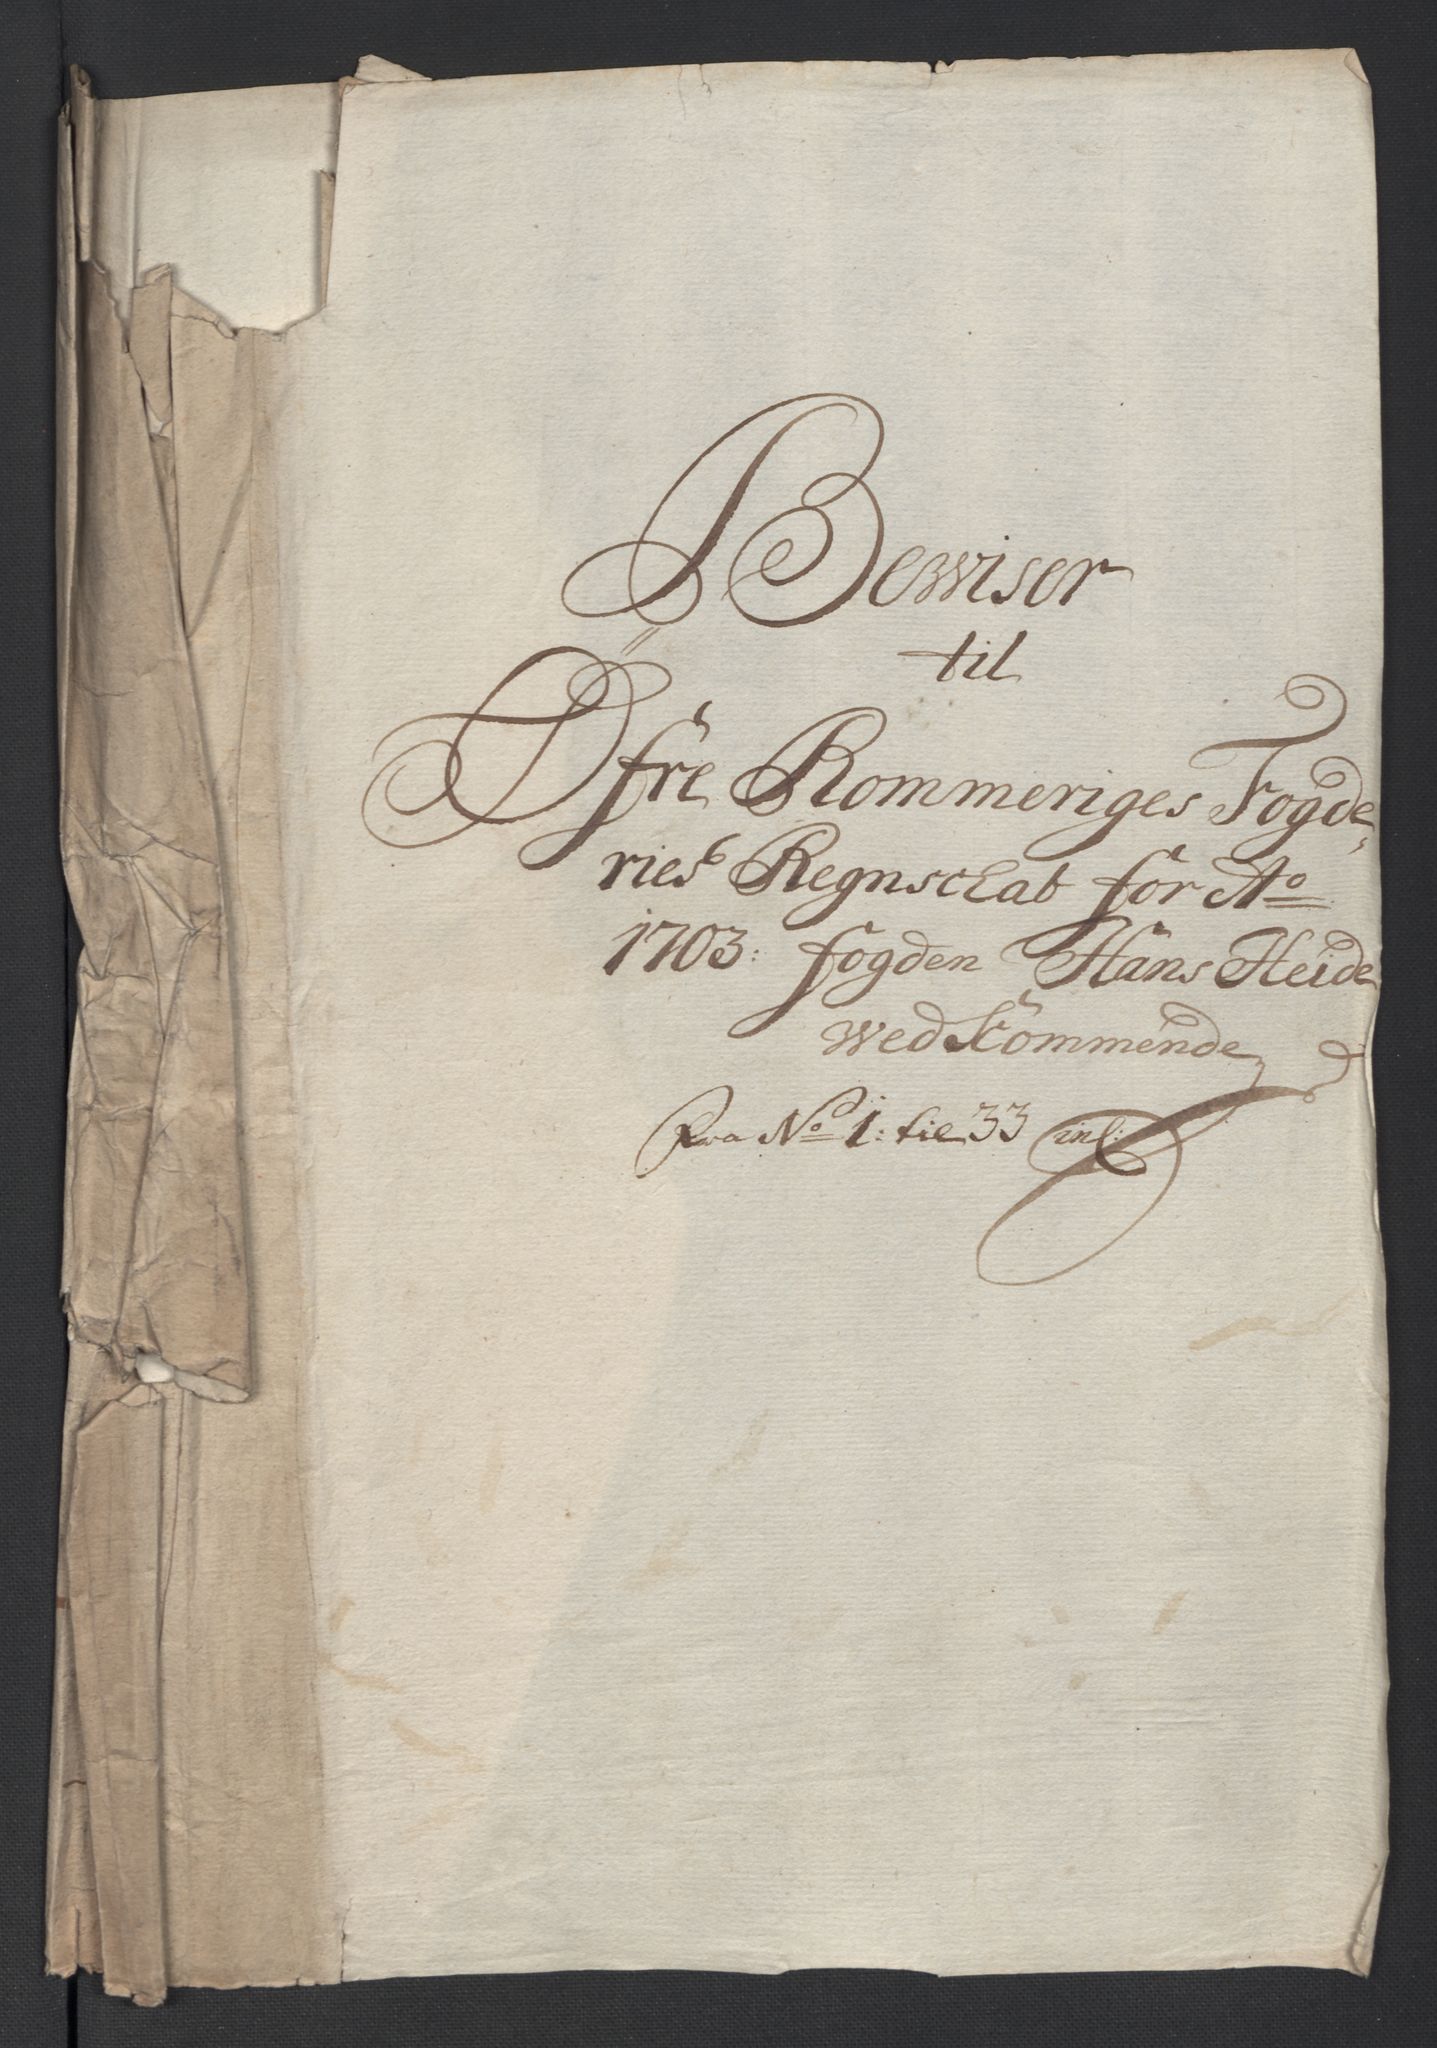 Bewiser
til
Öfre Rommeriges Fogde,,
ries Regnschab for Ao
1703: fogden Hans Heide
wedkommende
Fra No 1: til 33 inl: